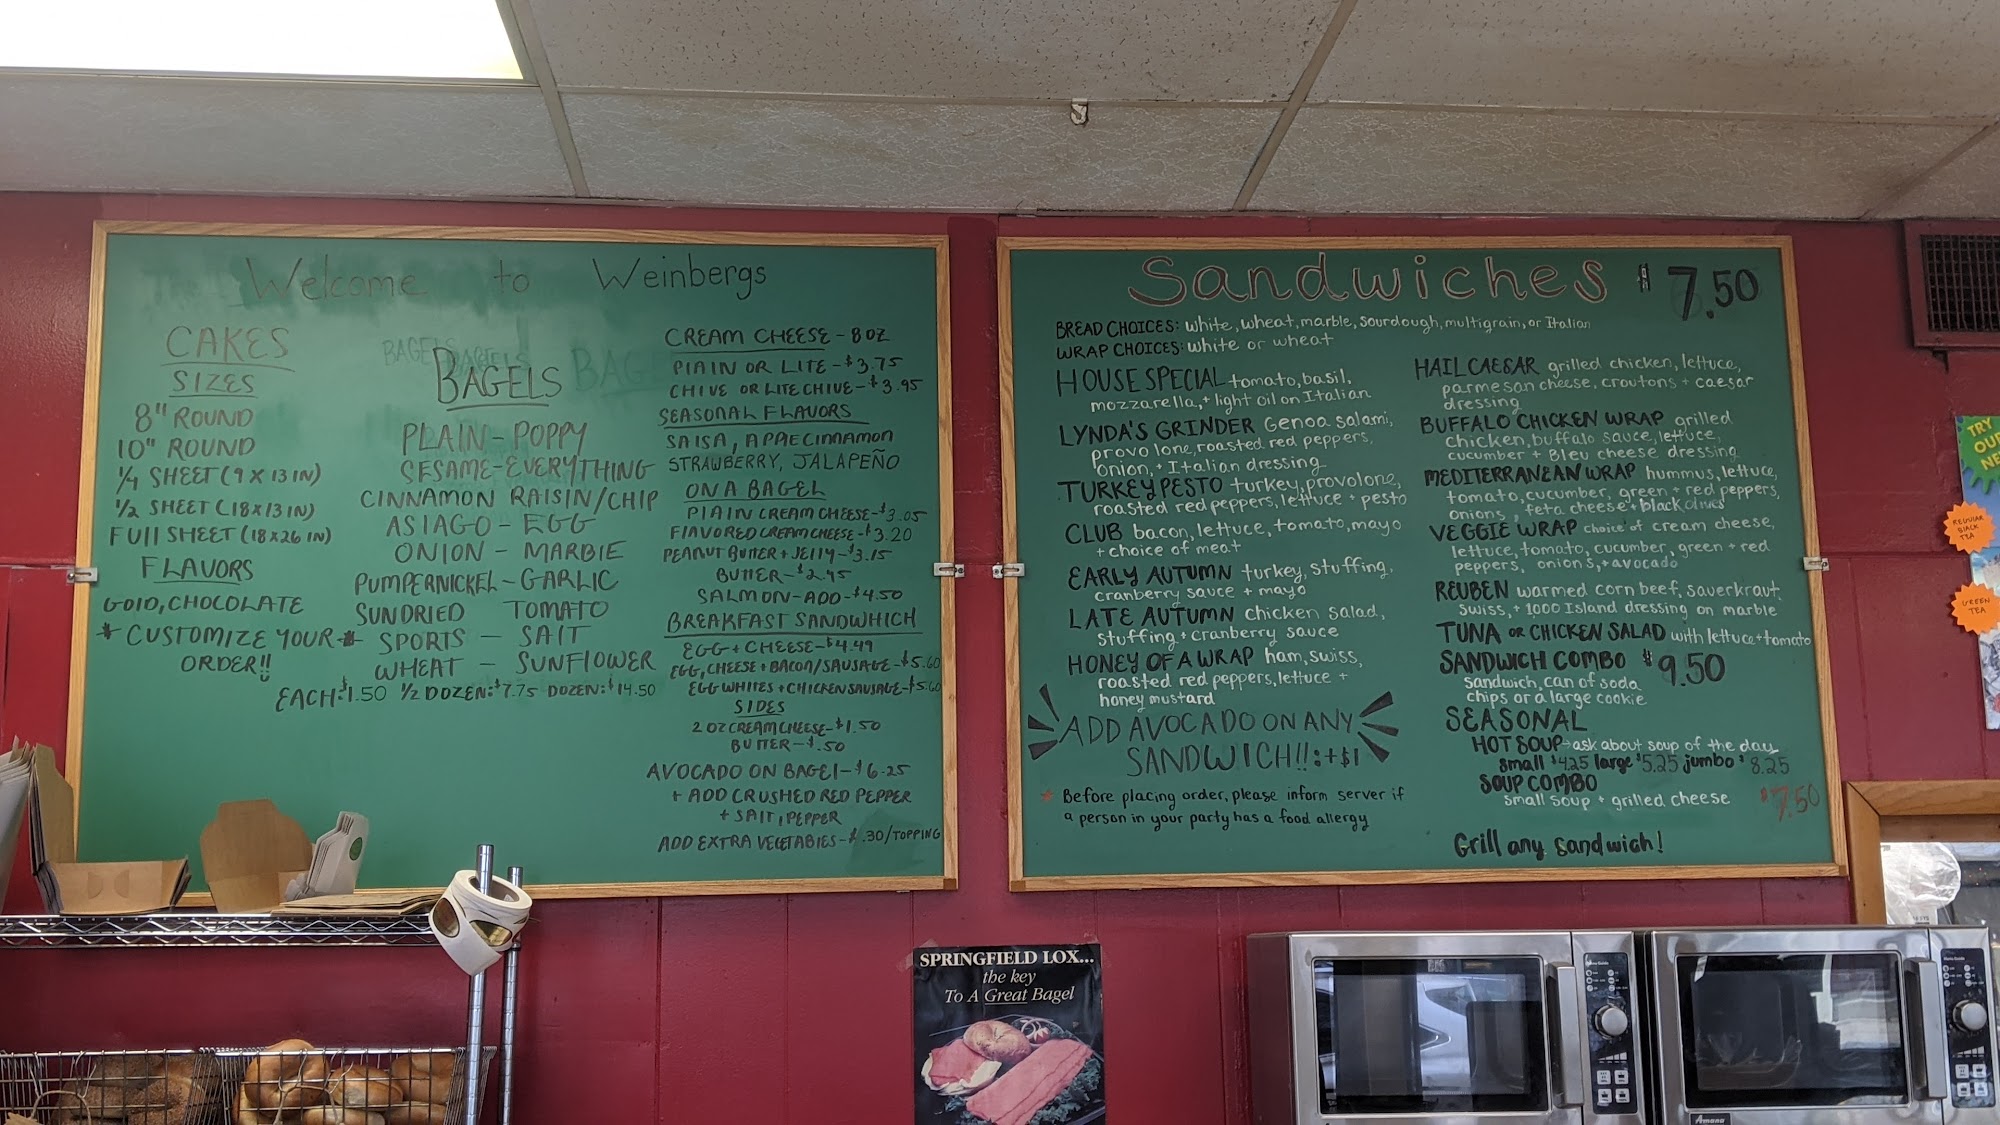 Welcome to Weinbergs
CAKES
SIZES
8" ROUND
10" ROUND
1/4 SHEET (9 X 13 IN)
1/2 SHEET (18 X 13 IN)
FUll SHEET (18 X 26 IN)
FLAVORS
GOlD, CHOCOLATE
* CUSTOMIZE YOUR *
ORDER!!
BAGELS
PLAIN - POPPY
SESAME - EVERYTHING
CINNAMON RAISIN/CHIP
ASIAGO - EGG
ONION - MARBlE
PUMPERNICKEL - GARLIC
SUNDRIED TOMATO
SPORTS - SAlT
WHEAT - SUNFLOWER
EACH: $1.50 1/2 DOZEN: $7.75 DOZEN: $14.50
CREAM CHEESE - 8 OZ
PlAIN OR LITE - $3.75
CHIVE OR LITE CHIVE - $3.95
SEASONAL FLAVORS
SAlSA, APPlE CINNAMON
STRAWBERRY, JALAPEÑO
ON A BAGEL
PlAIN CREAM CHEESE - $3.05
FlAVORED CREAM CHEESE - $3.20
PEANUT BUTTER + JELLY - $3.15
BUTTER - $2.45
SALMON - ADD - $4.50
BREAKFAST SANDWHICH
EGG + CHEESE - $4.49
EGG, CHEESE + BACON/SAUSAGE - $5.60
EGG WHITES + CHICKEN SAUSAGE - $5.60
SIDES
2 OZ CREAM CHEESE - $1.50
BUTTER - $.50
AVOCADO ON BAGEl - $6.25
+ ADD CRUSHED RED PEPPER
+ SAlT, PEPPER
ADD EXTRA VEGETABlES - $.30/TOPPING
Sandwiches $7.50
BREAD CHOICES: white, wheat, marble, sourdough, multigrain, or Italian
WRAP CHOICES: white or wheat
HOUSE SPECIAL tomato, basil,
mozzarella, + light oil on Italian
LYNDA'S GRINDER Genoa salami,
provolone, roasted red peppers,
onion, + Italian dressing
TURKEY PESTO turkey, provolone,
roasted red peppers, lettuce + pesto
CLUB bacon, lettuce, tomato, mayo
+ choice of meat
EARLY AUTUMN turkey, stuffing,
cranberry sauce + mayo
LATE AUTUMN chicken salad,
stuffing + cranberry sauce
HONEY OF A WRAP ham, swiss,
roasted red peppers, lettuce +
honey mustard
ADD AVOCADO ON ANY
SANDWICH!!: +$1
* Before placing order, please inform server if
a person in your party has a food allergy
HAIL CAESAR grilled chicken, lettuce,
parmesan cheese, croutons + caesar
dressing
BUFFALO CHICKEN WRAP grilled
chicken, buffalo sauce, lettuce,
cucumber + Bleu cheese dressing
MEDITERRANEAN WRAP hummus, lettuce,
tomato, cucumber, green + red peppers,
onions, feta cheese + black olives
VEGGIE WRAP choice of cream cheese,
lettuce, tomato, cucumber, green + red
peppers, onions, + avocado
REUBEN warmed corn beef, sauerkraut,
Swiss, + 1000 Island dressing on marble
TUNA OR CHICKEN SALAD with lettuce + tomato
SANDWICH COMBO $9.50
sandwich, can of soda
chips or a large cookie
SEASONAL
HOT SOUP - ask about soup of the day
small $4.25 large $5.25 jumbo $8.25
SOUP COMBO
small soup + grilled cheese $7.50
Grill any sandwich!
SPRINGFIELD LOX...
the key
To A Great Bagel
TRY
OUR
REGULAR
BLACK
TEA
GREEN
TEA
Amana